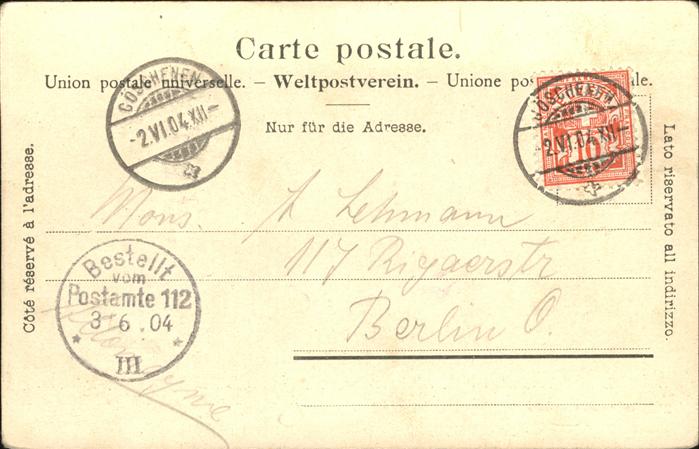 Carte postale.
Union postale universelle. – Weltpostverein. – Unione pos le.
Nur für die Adresse.
GÖSCHENEN
-2.VI.04.XII-
GÖSCHENEN
-2.VI.04.XII-
10
Côté réservé à l'adresse.
Lato riservato all indirizzo.
Mons. A Lehmann
117 Rigaerstr
Berlin O.
Bestellt
vom
Postamte 112
3 6. 04
* III *